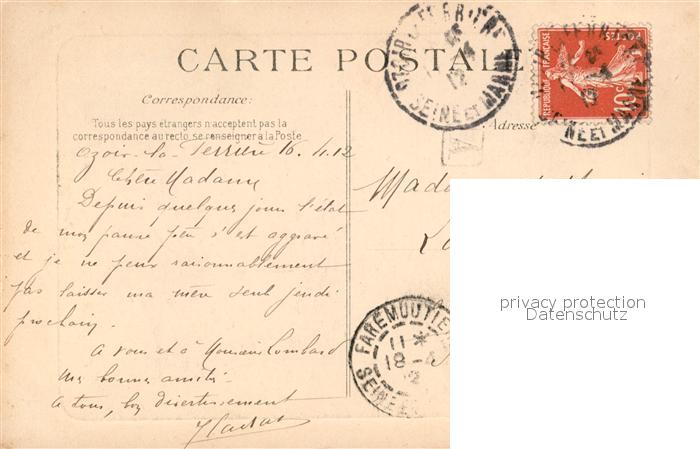 CARTE POSTALE
Correspondance:
Tous les pays étrangers n'acceptent pas la
correspondance au recto, se renseigner à la Poste
Adresse
Ozoir-la-Ferrière 16.4.12
Chère Madame
Depuis quelques jours l'état
de mon pauvre père s'est aggravé
et je ne peux raisonnablement
pas laisser ma mère seule jeudi
prochain.
A vous et à Monsieur Lombard
mes bonnes amitiés
a tous, bon divertissement
SEINE ET MARNE
REPUBLIQUE FRANÇAISE
POSTES
10c
SEINE ET MARNE
A
FAREMOUTIE
11 *
18-4
12
SEINE
privacy protection
Datenschutz